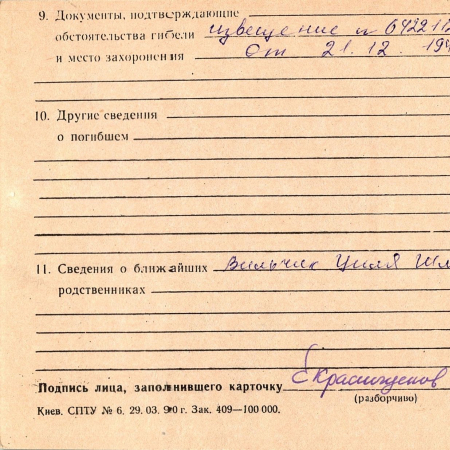 9. Документы, подтверждающие
обстоятельства гибели извещение № 6422
и место захоронения от 21.12.194
10. Другие сведения
о погибшем
11. Сведения о ближайших Вильчик Циля Шл
родственниках
Подпись лица, заполнившего карточку
(разборчиво)
Киев. СПТУ № 6. 29. 03. 90 г. Зак. 409—100 000.